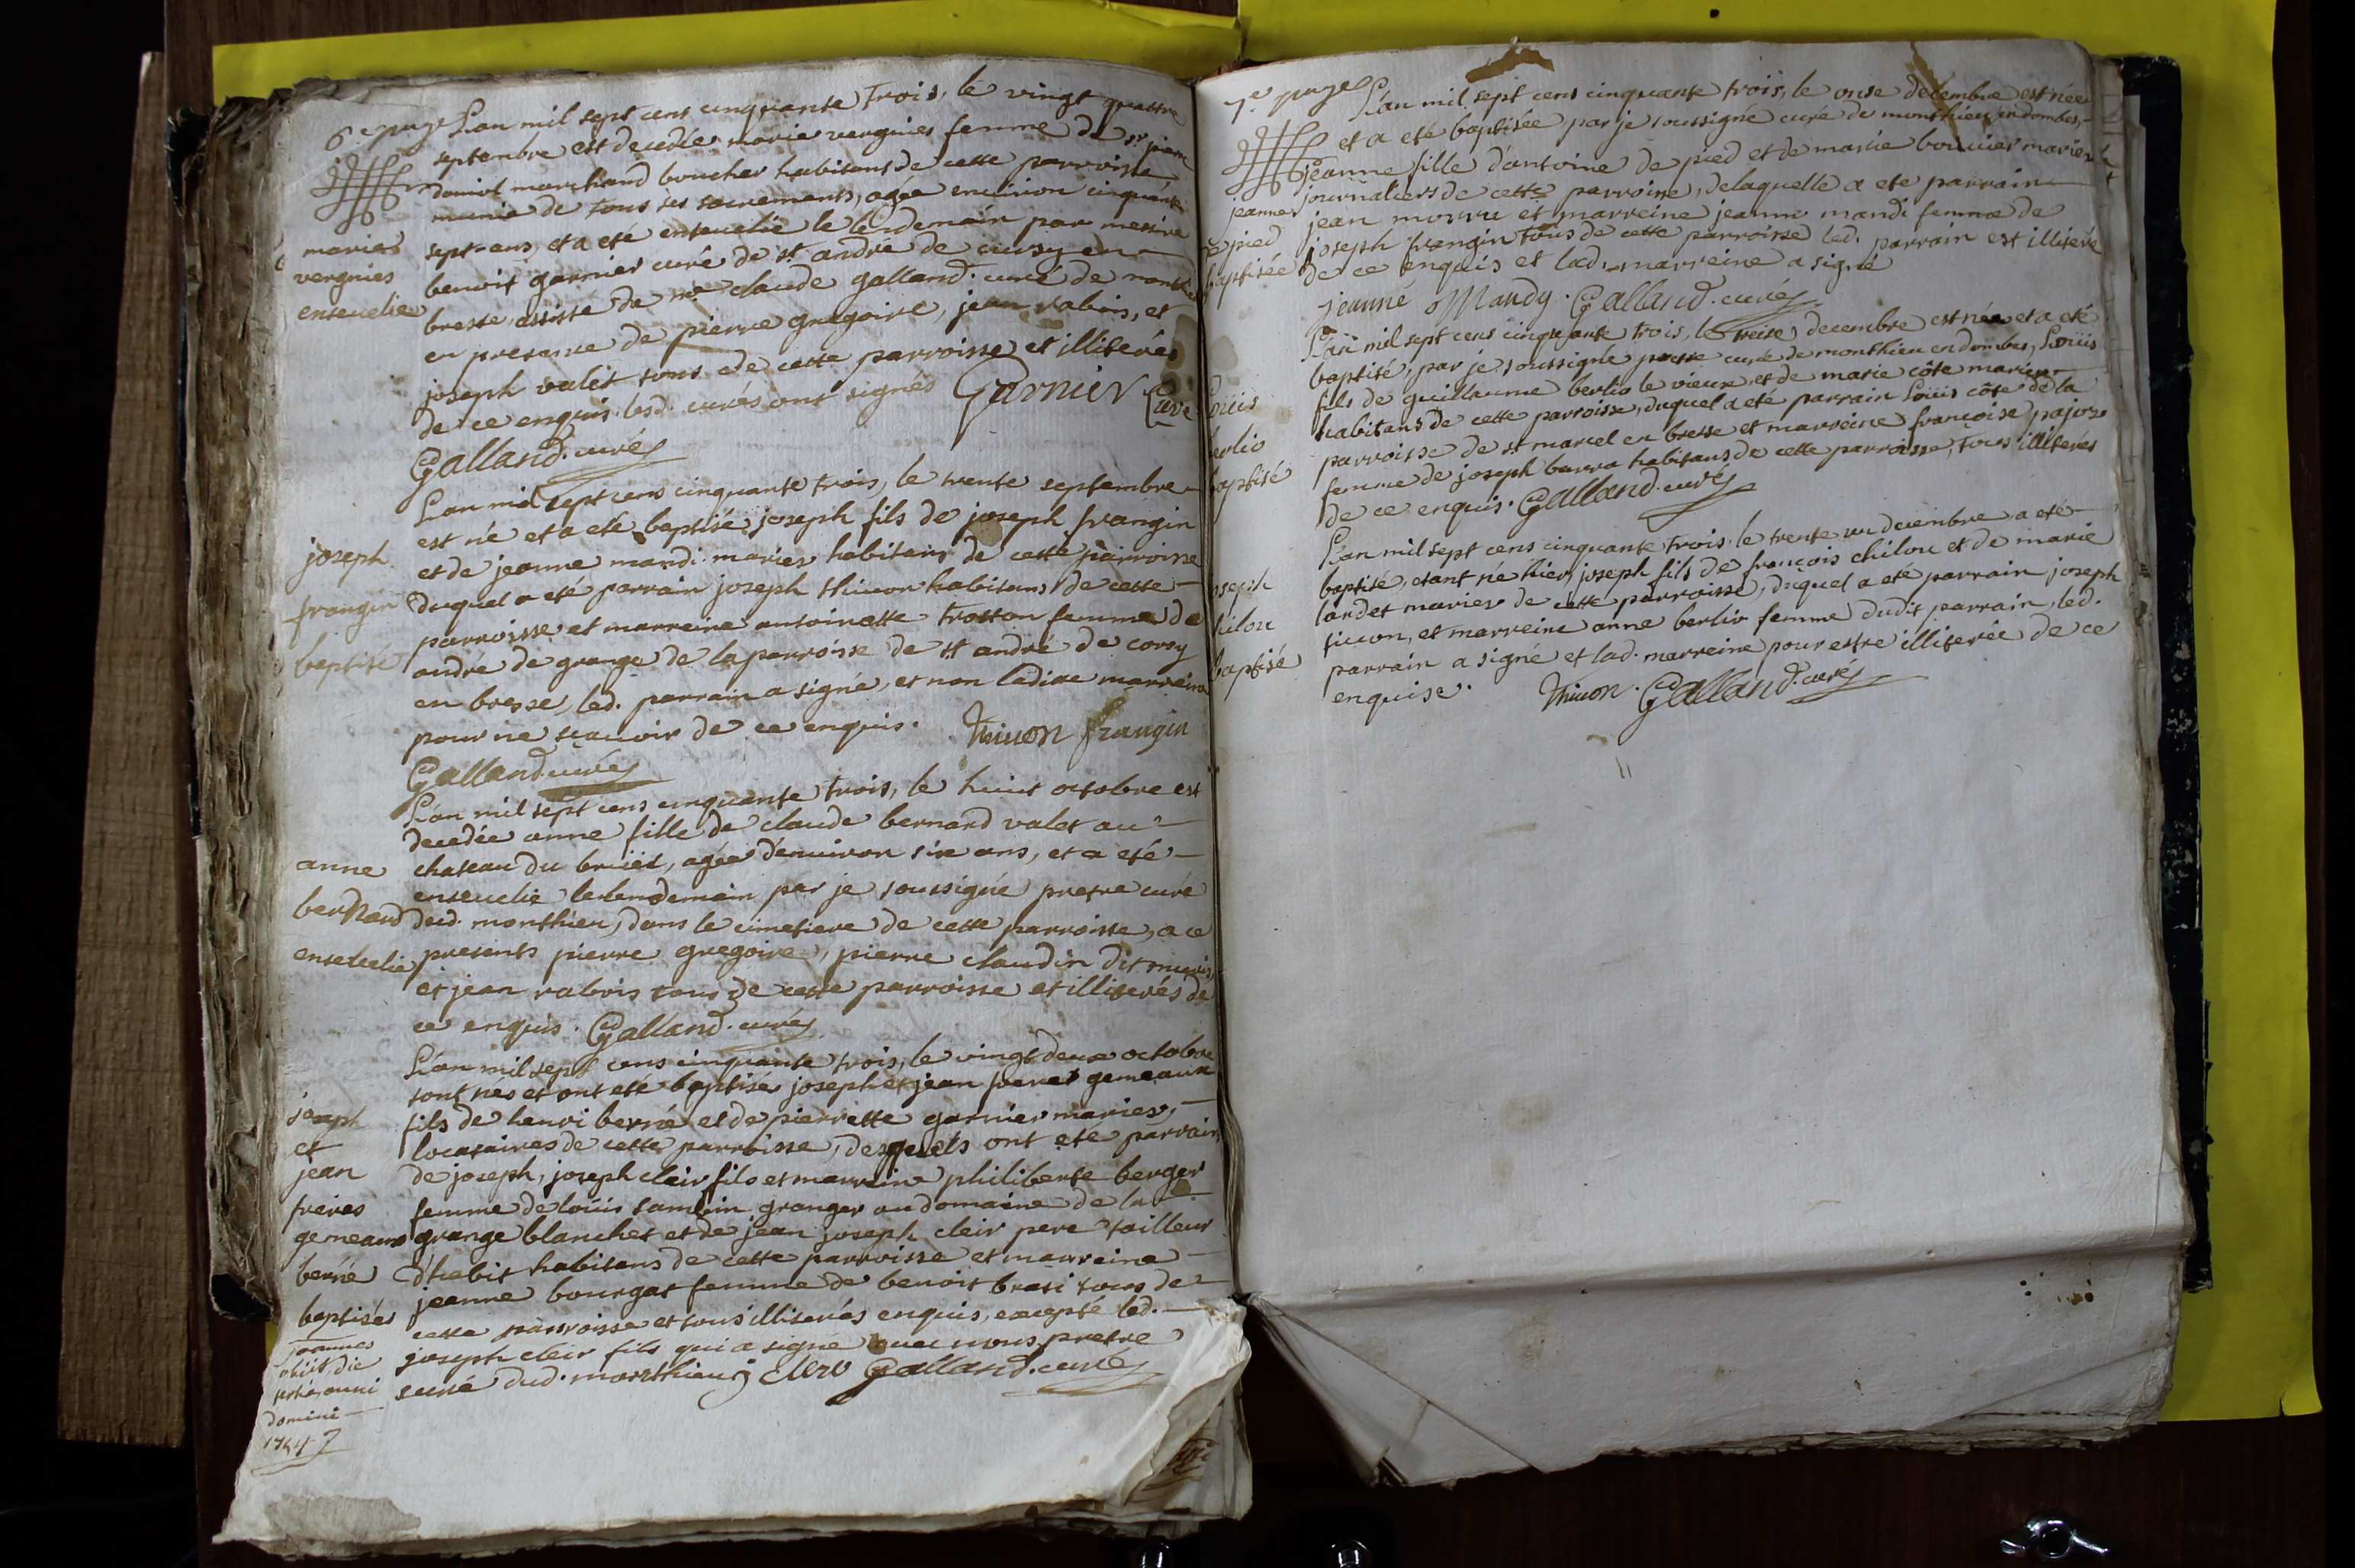 6e page L'an mil sept cens cinquante trois, le vingt quattre
septembre est decedée marie vergnies femme de sr pierre
damiot marchand boucher habitant de cette parroisse
munie de tous ses sacrements, agée environ cinquante
sept ans, et a eté ensevelie le lendemain par messire
benoit garnier curé de st andré de corsy en
bresse, assisté de mre claude galland curé de monthieu
en presence de pierre gregoire, jean rabois, et
joseph valet tous de cette parroisse et illiterés
de ce enquis lesd. curés ont signés Garnier Curé
Galland. curé
marie
vergnies
ensevelie
L'an mil sept cens cinquante trois, le trente septembre
est né et a eté baptisé joseph fils de joseph frangin
et de jeanne mandi mariés habitans de cette parroisse
duquel a eté parrain joseph thivon habitans de cette
parroisse et marreine antoinette trotton femme de
andré de grange de la parroisse de st andré de corsy
en bresse, led. parrain a signé, et non ladite marreine
pour ne sçavoir de ce enquis. Thivon frangin
Galland curé
joseph
frangin
baptisé
L'an mil sept cens cinquante trois, le huit octobre est
decedée anne fille de claude bernard valet au
chateau du breüil, agée d'environ six ans, et a eté
ensevelie le lendemain par je soussigné pretre curé
dud. monthieu, dans le cimetiere de cette parroisse, a ce
presents pierre gregoire, pierre claudin dit
et jean rabois tous de cette parroisse et illiterés de
ce enquis. Galland. curé
anne
berNard
ensevelie
L'an mil sept cens cinquante trois, le vingt deux octobre
sont nés et ont eté baptisés joseph et jean freres gemeaux
fils de henri berné et de pierrette garnier mariés,
locataires de cette parroisse, desquels ont eté parrain
de joseph, joseph cleir fils et marreine philiberte berger
femme de loüis samlin granger au domaine de la
grange blanche et de jean joseph cleir pere tailleur
d'habit habitans de cette parroisse et marreine
jeanne bourgat femme de benoit brasi tous de
cette parroisse et tous illiterés enquis, excepté led.
joseph cleir fils qui a signé avec nous pretre
curé dud. monthieu j Clero Galland. curé
joseph
et
jean
freres
gemeaux
berné
baptisés
joannes
obiit die
anni
domini
1754
7e page L'an mil sept cens cinquante trois, le onse decembre est née
et a eté baptisée par je soussigné curé de monthieu en dombes,
jeanne fille d'antoine de pied et de marie bouvier mariés
journaliers de cette parroisse, de laquelle a eté parrain
jean morru et marreine jeanne mandi femme de
joseph frangin tous de cette parroisse led. parrain est illiteré
de ce enquis et lad. marreine a signé
jeanne Mandy. Galland. curé
jeanne
de pied
baptisée
L'an mil sept cens cinquante trois, le treise decembre est né et a eté
baptisé, par je soussigné pretre curé de monthieu en dombes, Loüis
fils de guillaume berlio le vieux, et de marie côte mariés
habitans de cette parroisse, duquel a eté parrain Loüis côte de la
parroisse de st marcel en bresse et marreine françoise pajor
femme de joseph barra habitans de cette parroisse, tous illiterés
de ce enquis. Galland. curé
Loüis
berlio
baptisé
L'an mil sept cens cinquante trois le trente un decembre a eté
baptisé, etant né hier joseph fils de françois chilou et de marie
lardet mariés de cette parroisse, duquel a eté parrain joseph
tivon, et marreine anne berlio femme dudit parrain, led.
parrain a signé et lad. marreine pour estre illiterée de ce
enquise. Thivon. Galland. curé
joseph
chilou
baptisé